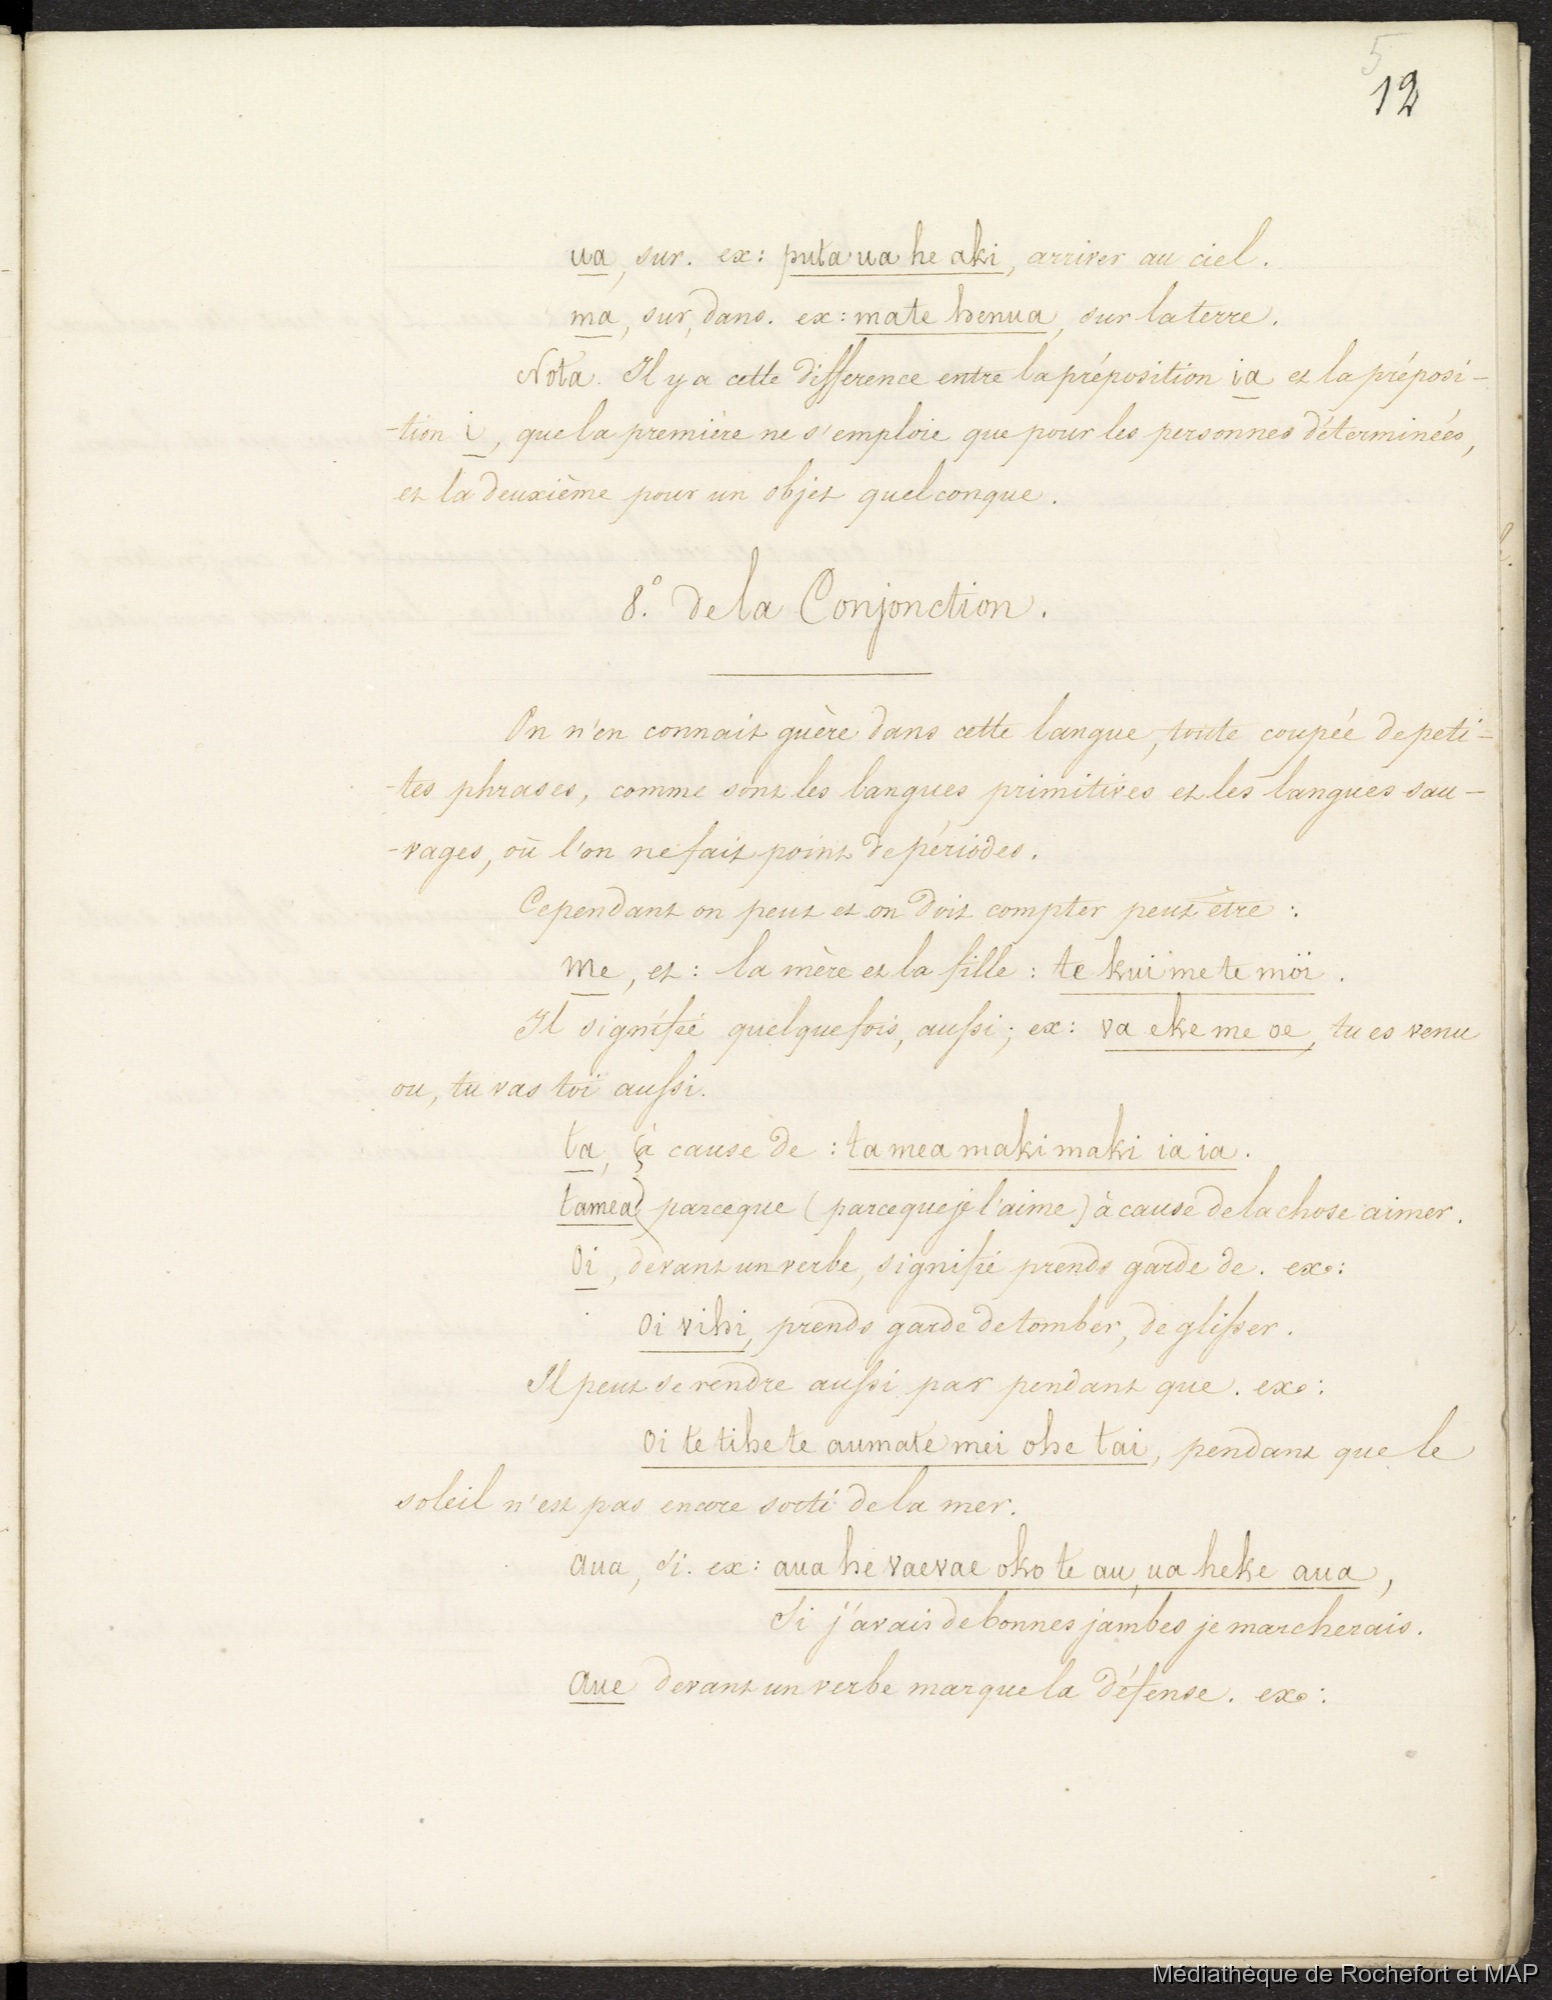 5
12
ua, sur. ex: puta ua he aki, arriver au ciel.
ma, sur, dans. ex: ma te henua, sur la terre.
Nota. Il y a cette difference entre la préposition ia et la préposi-
-tion i, que la première ne s'emploie que pour les personnes déterminées,
et la deuxième pour un objet quelconque.
8.° de la Conjonction.
On n'en connait guère dans cette langue, toute coupée de peti-
-tes phrases, comme sont les langues primitives et les langues sau-
-vages, où l'on ne fait point de périodes.
Cependant on peut et on doit compter peut être :
me, et : la mère et la fille : te kui me te moï.
Il signifie quelquefois, aussi ; ex: va eke me oe, tu es venu
ou, tu vas toi aussi.
ta, à cause de : ta mea makimaki ia ia.
tamea parceque (parceque je l'aime) à cause de la chose aimer.
Oi, devant un verbe, signifie prends garde de. ex:
Oi vihi, prends garde de tomber, de glisser.
Il peut se rendre aussi par pendant que. ex:
Oi te tihe te aumate mei ohe tai, pendant que le
soleil n'est pas encore sorti de la mer.
aua, Si. ex: aua he vaevae oko te au, ua heke aua,
Si j'avais de bonnes jambes je marcherais.
aue devant un verbe marque la défense. ex:
Médiathèque de Rochefort et MAP